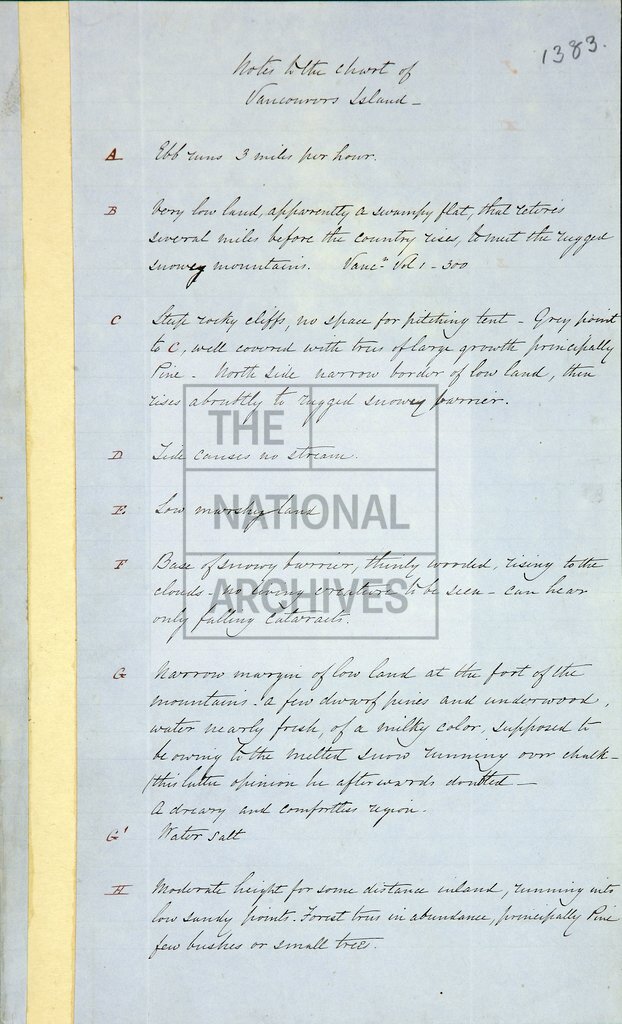 1383.
Notes to the chart of
Vancouvers Island -
A Ebb runs 3 miles per hour.
B Very low land, apparently a swampy flat, that retires
several miles before the country rises, to meet the rugged
snowy mountains. Vancr Vol 1 - 300
C Steep rocky cliffs, no space for pitching tent - Grey point
to C, well covered with trees of large growth principally
Pine - North side narrow border of low land, then
rises abruptly to rugged snowy barrier.
D Tide causes no stream.
E Low marshy land
F Base of snowy barrier, thinly wooded, rising to the
clouds - no living creature to be seen - can hear
only falling Cataracts.
G Narrow margin of low land at the foot of the
mountains - a few dwarf pines and underwood,
water nearly fresh, of a milky color, supposed to
be owing to the melted snow running over chalk -
(this latter opinion he afterwards doubted -
A dreary and comfortless region.
G' Water salt
H Moderate height for some distance inland, running into
low sandy points. Forest trees in abundance, principally Pine
few bushes or small trees.
THE
NATIONAL
ARCHIVES